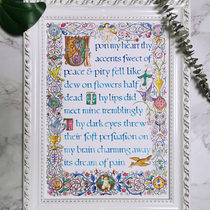 Upon my heart thy
accents sweet of
peace & pity fell like
dew on flowers half
dead Thy lips did
meet mine tremblingly
Thy dark eyes threw
their soft persuasion on
my brain charming away
its dream of pain